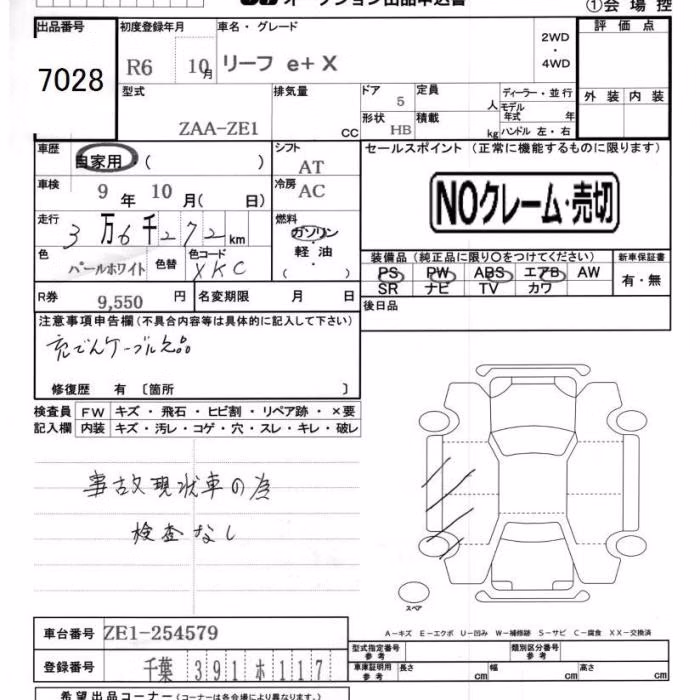 オークション出品申込書
①会場控
出品番号 7028
初度登録年月 R6 10月
車名・グレード リーフ e+ X
2WD
・
4WD
評価点
外装 内装
型式 ZAA-ZE1
排気量 CC
ドア 5
定員 人
形状 HB
積載 kg
ディーラー・並行
モデル年式 年
ハンドル 左・右
車歴 自家用・( )
シフト AT
車検 9年10月( 日)
冷房 AC
走行 3万6千272km
燃料 ガソリン・軽油・( )
色 パールホワイト 色替
色コード XKC
R券 9,550 円
名変期限 月 日
セールスポイント (正常に機能するものに限ります)
NOクレーム・売切
装備品(純正品に限り〇をつけてください)
新車保証書
PS PW ABS エアB AW
SR ナビ TV カワ
有・無
後日品
注意事項申告欄(不具合内容等は具体的に記入して下さい)
充でんケーブル欠品
修復歴 有 〔箇所 〕
検査員 FW キズ・飛石・ヒビ割・リペア跡・×要
記入欄 内装 キズ・汚レ・コゲ・穴・スレ・キレ・破レ
事故現状車の為
検査なし
スペア
A-キズ E-エクボ U-凹み W-補修跡 S-サビ C-腐食 XX-交換済
車台番号 ZE1-254579
登録番号 千葉 391 ホ 117
型式指定番号 参考
類別区分番号 参考
車庫証明用 参考 長さ cm 幅 cm 高さ cm
希望出品コーナー(コーナーは各会場により異なります。)